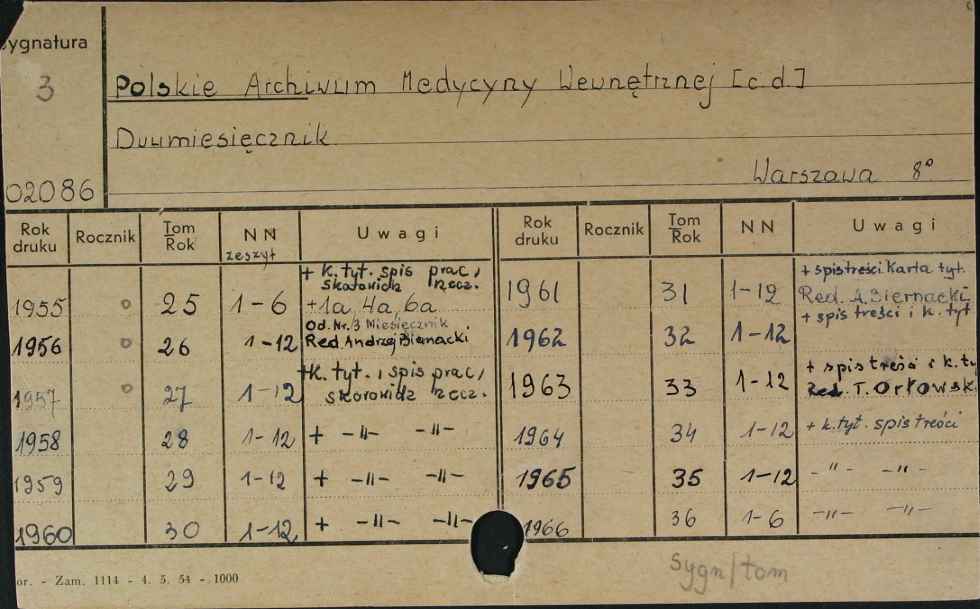 ygnatura
3
02086
Polskie Archiwum Medycyny Wewnętrznej [c.d.]
Dwumiesięcznik
Warszawa 8°
Rok druku Rocznik Tom Rok NN zeszyt Uwagi
1955 o 25 1-6 + k. tyt. spis prac, skorowidz rzecz. +1a, 4a, 6a
1956 o 26 1-12 Od. Nr. 3 Miesięcznik Red. Andrzej Biernacki
1957 o 27 1-12 +k. tyt. i spis prac, skorowidz rzecz.
1958 28 1-12 + -"- -"-
1959 29 1-12 + -"- -"-
1960 30 1-12 + -"- -"-
Rok druku Rocznik Tom Rok NN Uwagi
1961 31 1-12 + spis treści Karta tyt. Red. A. Biernacki
1962 32 1-12 + spis treści i k. tyt
1963 33 1-12 + spis treści i k. ty Red. T. Orłowsk
1964 34 1-12 + k. tyt. spis treści
1965 35 1-12 -"- -"-
1966 36 1-6 -"- -"-
or. - Zam. 1114 - 4. 5. 54 - 1000
sygn/tom